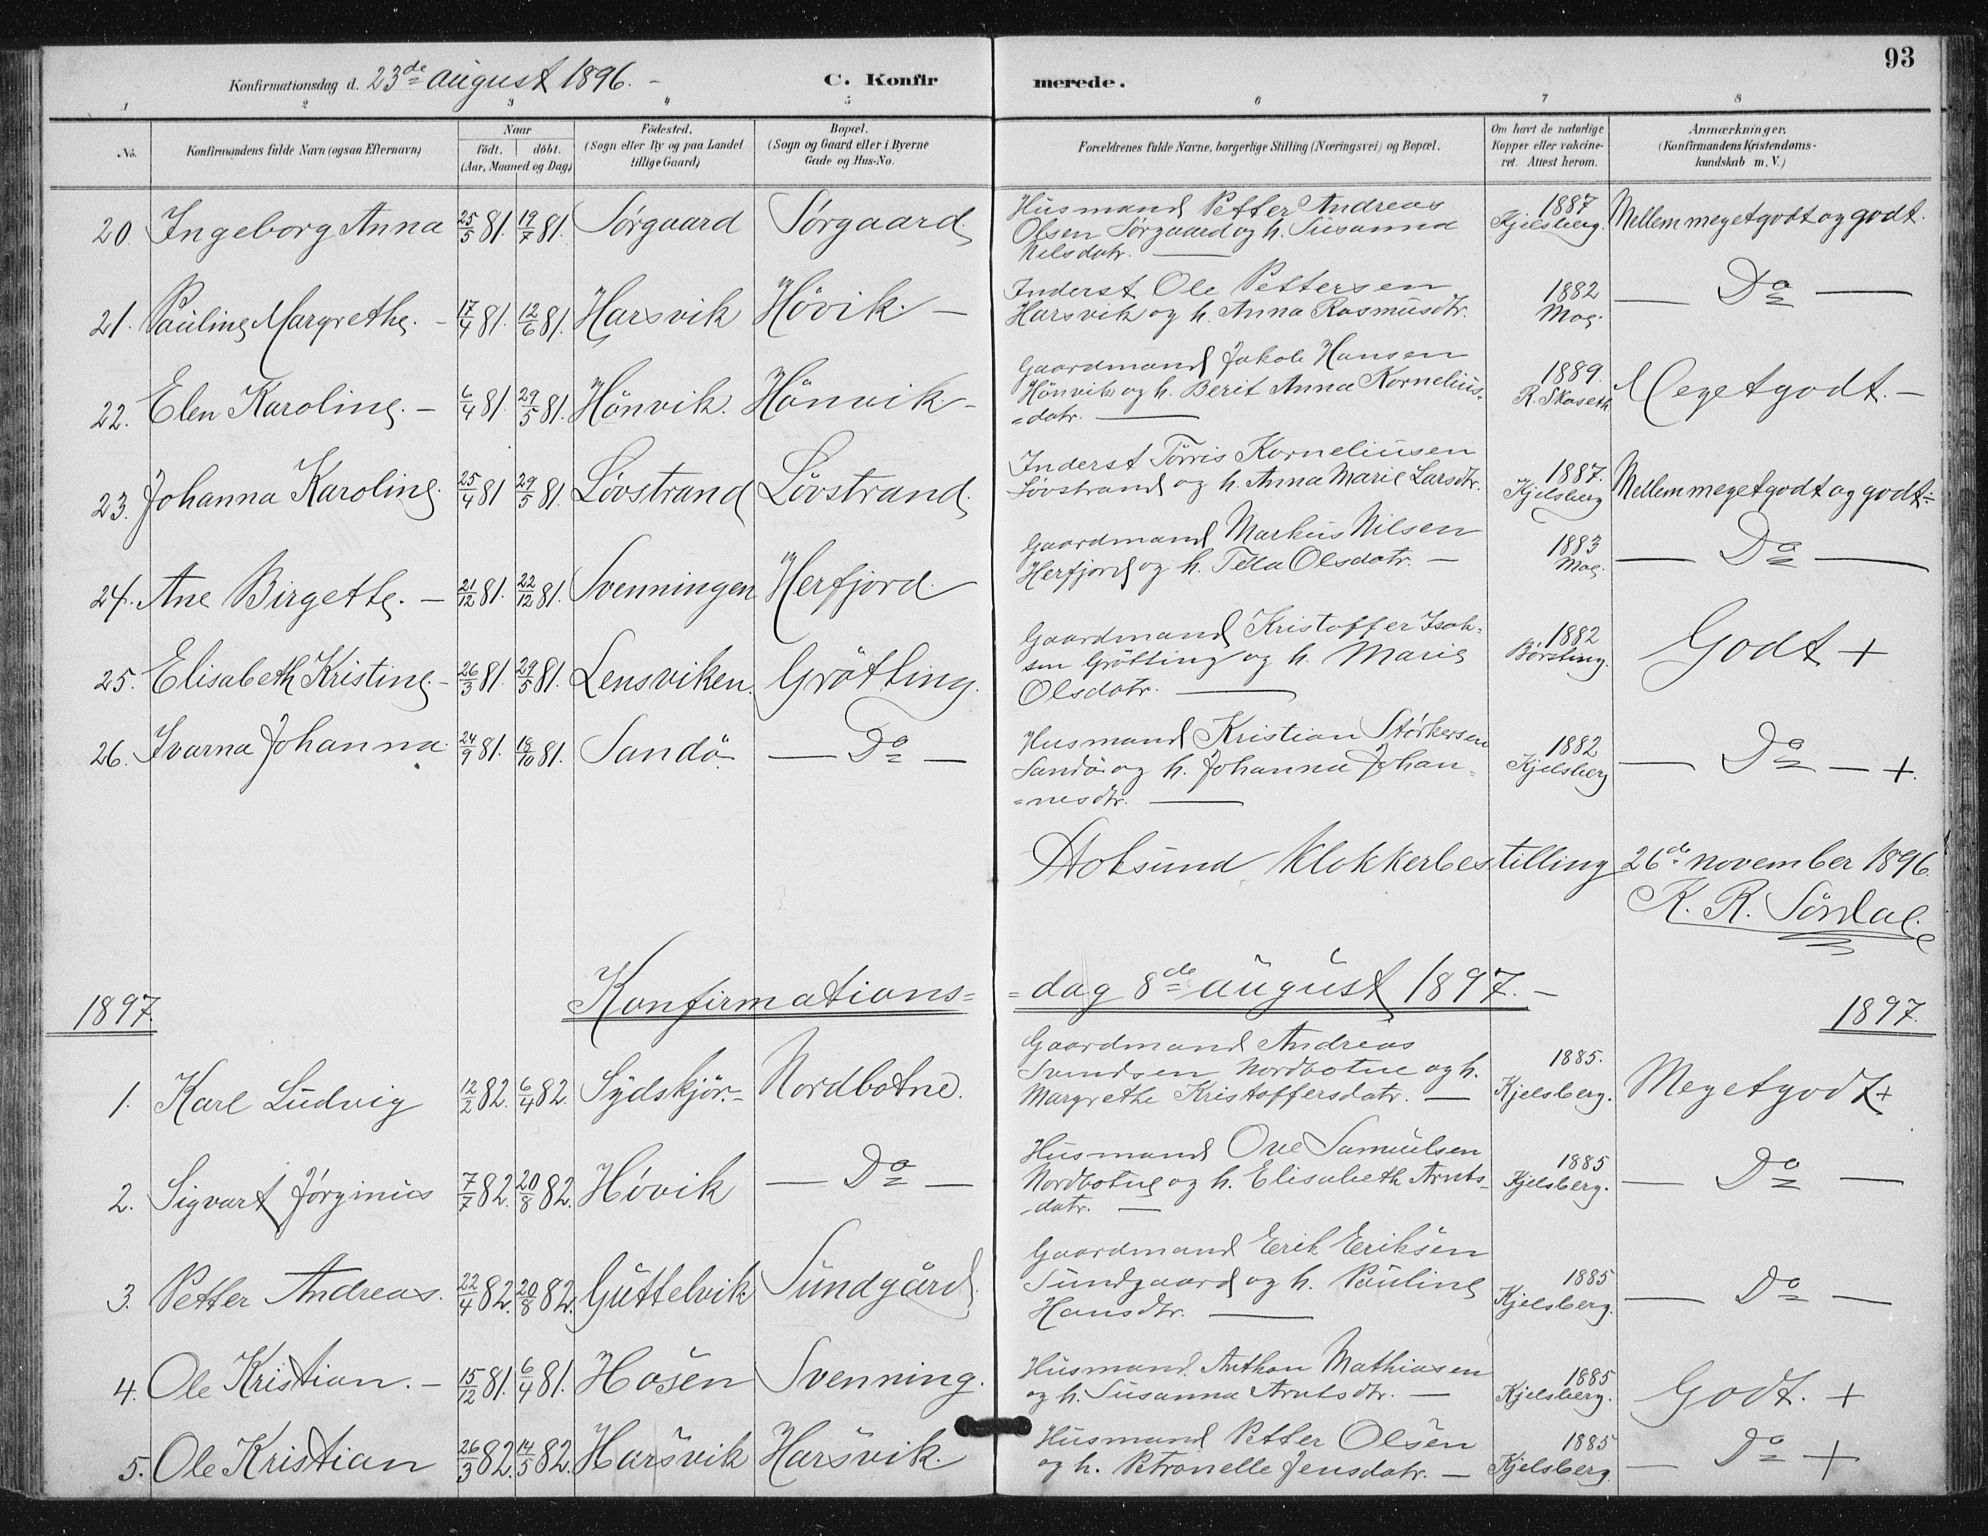 93
Konfirmationsdag d. 23de august 1896. –
C. Konfirmerede.
1 2 3 4 5 6 7 8
No. Konfirmandens fulde Navn (ogsaa Efternavn) Naar födt. döbt. (Aar, Maaned og Dag) Födested. (Sogn eller By og paa Landet tillige Gaard) Bopæl. (Sogn og Gaard eller i Byerne Gade og Hus-No. Forældrenes fulde Navne, borgerlige Stilling (Næringsvei) og Bopæl. Om havt de naturlige Kopper eller vakcineret. Attest herom. Anmærkninger. (Konfirmandens Kristendomskundskab m. V.)
20. Ingeborg Anna 25/5 81. 19/7 81. Sørgaard Sørgaard. Husmand Petter Andreas Olsen Sørgaard og h. Susanna Nilsdatr. — 1887 Kjelsberg. Mellem megetgodt og godt.
21. Pauline Margrethe. – 17/4 81. 12/6 81. Harsvik Hövik. – Inderst Ole Pettersen Harsvik og h. Anna Rasmusdtr. 1882 Moe. — Do —
22. Elen Karoline. – 6/4 81. 29/5 81. Hönvik. Hönvik – Gaardmand Jakob Hansen Hönvik og h. Berit Anna Kornelius-=datr. — 1889. R. Skaseth Megetgodt. –
23. Johanna Karoline. 25/4 81 29/5 81. Lövstrand Lövstrand. Inderst Törris Korneliusen Lövstrand og h. Anna Marie Larsdtr. 1887. Kjelsberg Mellem megetgodt og godt.
24. Ane Birgette. – 21/12 81. 22/12 81. Svenningen Herfjord Gaardmand Markus Nilsen Herfjord og h. Tella Olsdatr. — 1883 Moe. — Do —
25. Elisabeth Kristine – 26/3 81. 29/5 81. Lensviken. Grötting. Gaardmand Kristoffer Isaksen Grötting og h. Marie Olsdatr. — 1882 Børsting. Godt +
26. Ivarna Johanna. 24/9 81. 18/10 81. Sandö — Do — Husmand Kristian Størkersen Sandö og h. Johanna Johan-=nesdtr. — 1882 Kjelsberg — Do — +.
Stoksund Klokkerbestilling 26de november 1896.
K. R. Sördal.
1897. Konfirmations= =dag 8de august 1897. – 1897.
1. Karl Ludvig 12/2 82. 6/4 82. Sydskjör. – Nordbotne. Gaardmand Andreas Svendsen Nordbotne og h. Margrethe Kristoffersdatr. — 1885. Kjelsberg. Megetgodt +
2. Sigvart Jörginius 7/7 82. 20/8 82. Hövik — Do — Husmand Ove Samuelsen Nordbotne og h. Elisabeth Arnts-datr. — 1885 Kjelsberg. — Do —
3. Petter Andreas. 22/4 82. 20/8 82. Guttelvik Sundgård. Gaardmand Erik Eriksen Sundgaard og h. Pauline Hansdtr. — 1885 Kjelsberg. — Do —
4. Ole Kristian. – 15/12 81. 6/4 81. Hosen Svenning. Husmand. Anthon Mathiasen og h. Susanna Arntsdtr. — 1885 Kjelsberg. Godt. +
5. Ole Kristian 26/3 82. 14/5 82. Harsvik Harsvik. Husmand Petter Olsen og h. Petronelle Jensdatr. — 1885 Kjelsberg. — Do +